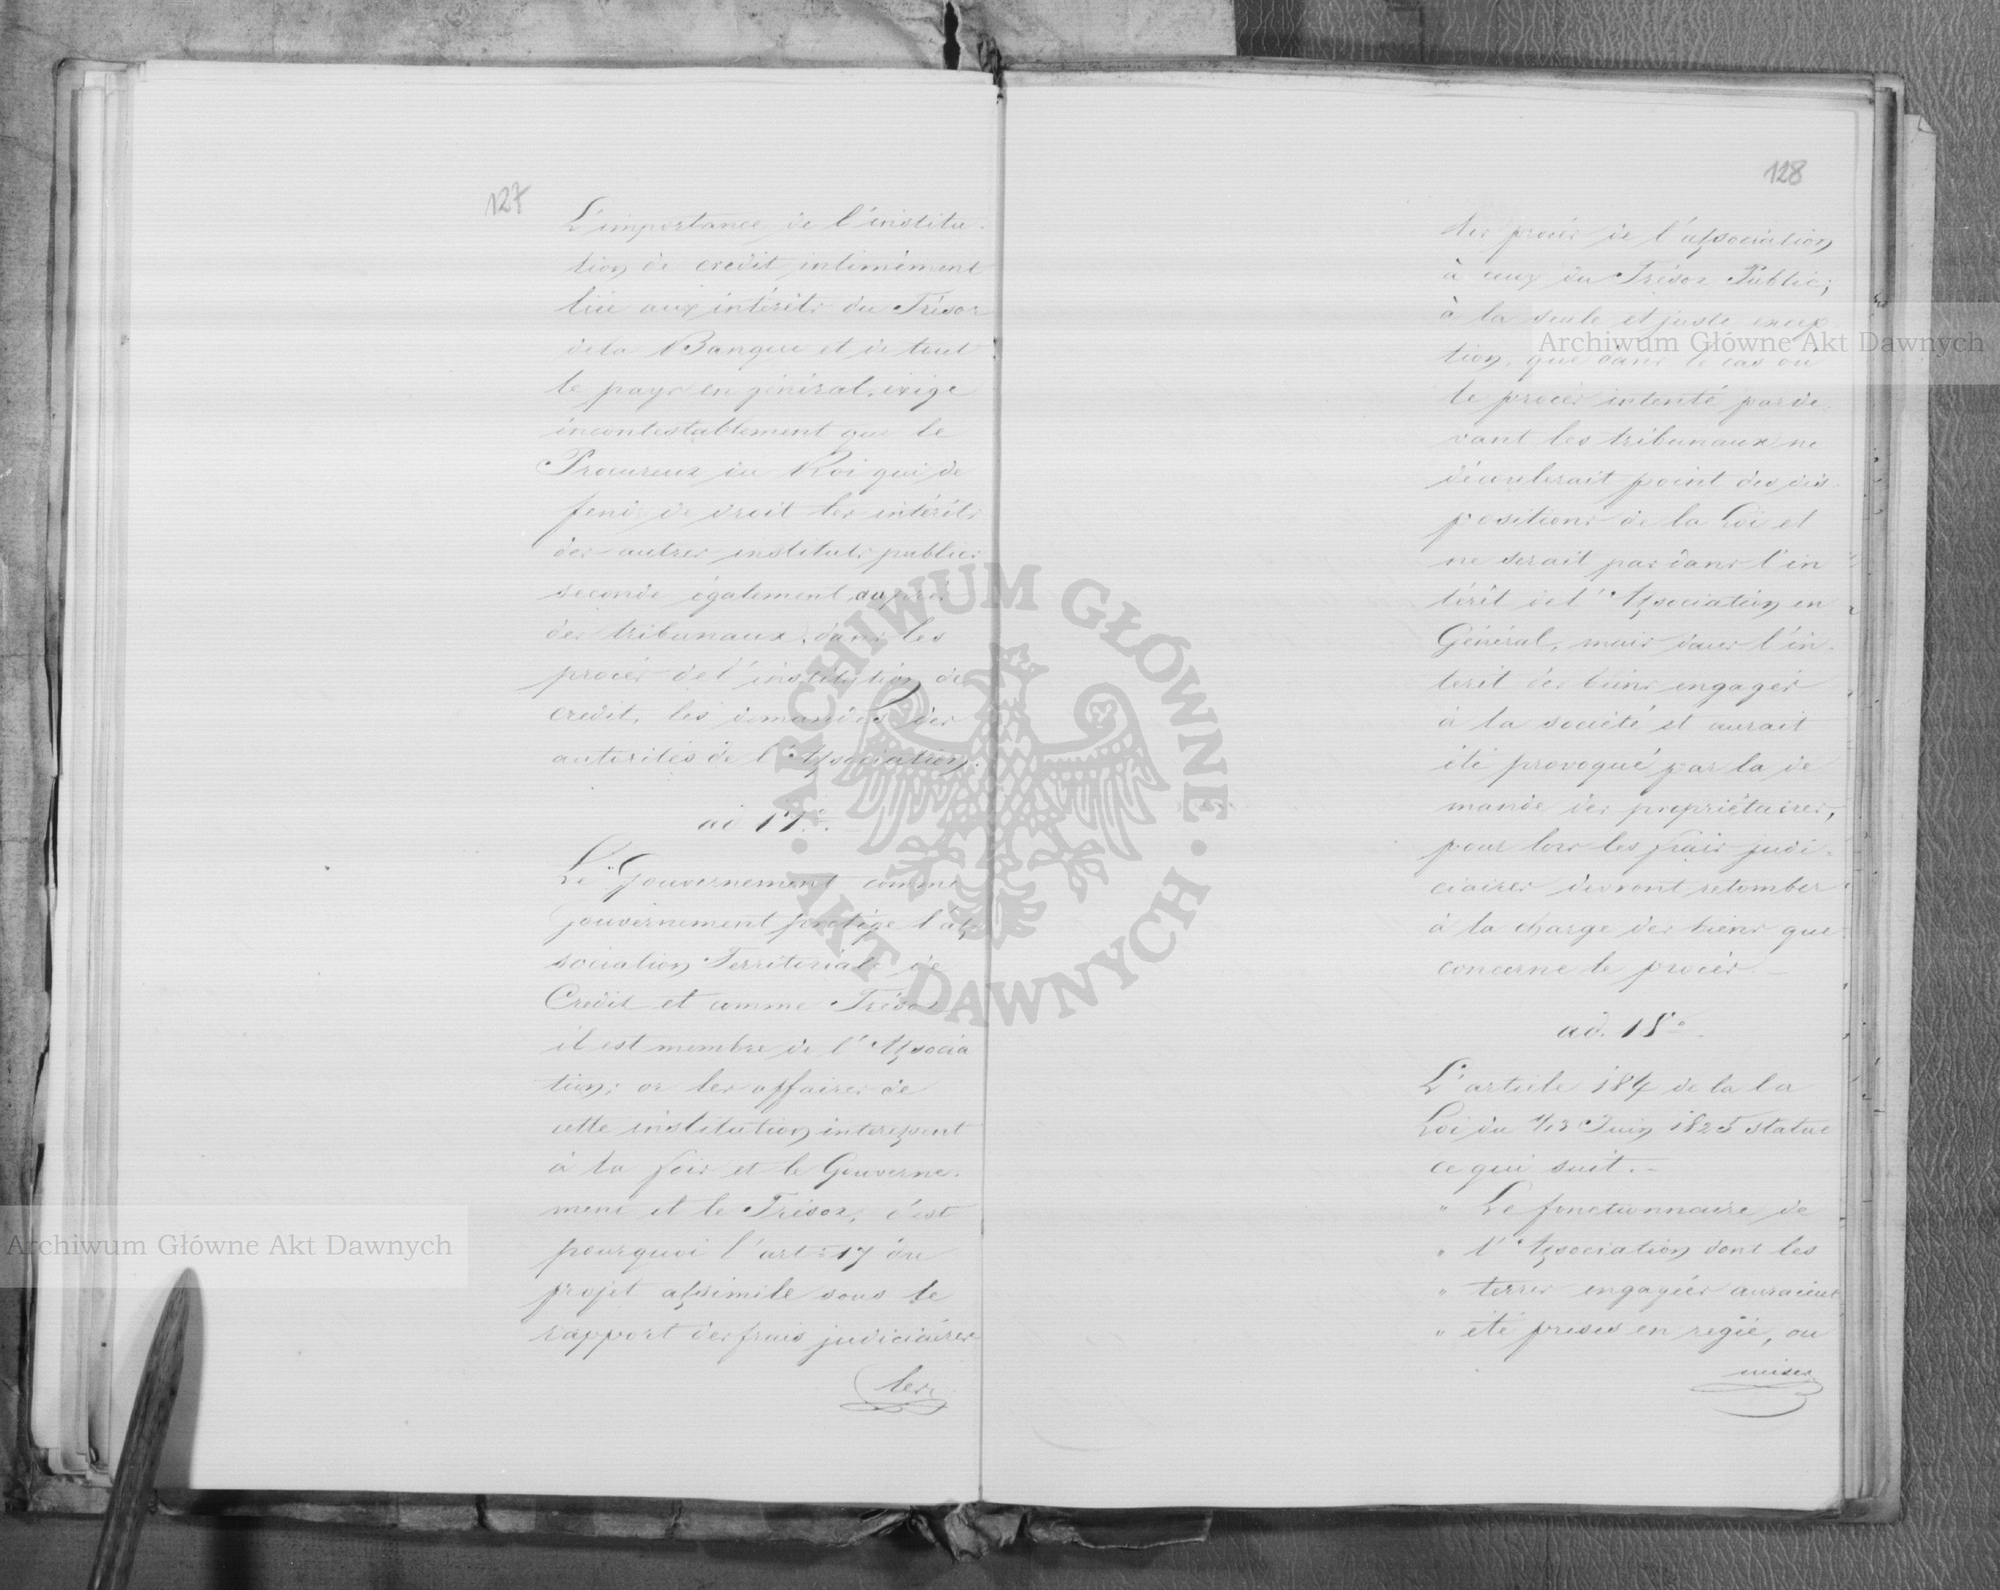 127
L'importance de l'institu-
tion de credit intimèment
liée aux intérêts du Trésor
de la Banque et de tout
le pays en général, exige
incontestablement que le
Procureur du Roi qui dé
fend de droit les intérêts
des autres instituts publics
seconde également auprès
des tribunaux, dans les
procès de l'institution de
credit, les demandes des
autorités de l'Association.
ad 17º.
Le Gouvernement comme
Gouvernement protège l'as
sociation Territoriale de
Credit et comme Trésor
il est membre de l'Associa
tion; or les affaires de
cette institution interessent
à la fois et le Gouverne-
ment et le Trésor, c'est
pourquoi l'art: 17 du
projet assimile sous le
rapport des frais judiciaires
les
128
les procès de l'association
à ceux du Trésor Public;
à la seule et juste excep
tion, que dans le cas où
le procès intenté par de
vant les tribunaux ne
découlerait point des dis-
positions de la Loi et
ne serait pas dans l'in
térêt de l'Association en
Général, mais dans l'in-
terêt des biens engagés
à la société et aurait
été provoqué par la de
mande des propriétaires,
pour lors les frais judi-
ciaires devront retomber
à la charge des biens que
concerne le procès. —
ad. 18º.
L'article 184 de la la
Loi du 1/13 Juin 1825 statue
ce qui suit. —
" Le fonctionnaire de
" l'Association dont les
" terres engagées auraient
" été prises en regie, ou
mises
Archiwum Główne Akt Dawnych
Archiwum Główne Akt Dawnych
ARCHIWUM GŁÓWNE
AKT DAWNYCH